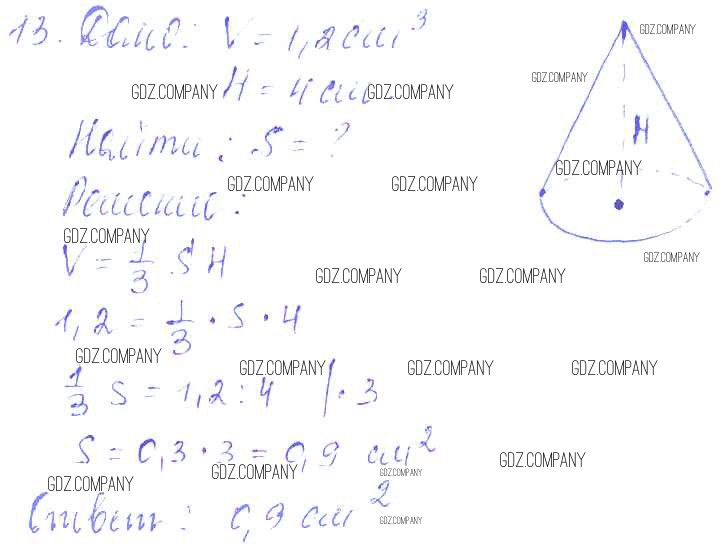 13. Дано: V = 1,2 см³
GDZ.COMPANY
GDZ.COMPANY
GDZ.COMPANY H = 4 см GDZ.COMPANY
H
Найти: S = ?
GDZ.COMPANY
GDZ.COMPANY GDZ.COMPANY
Решение:
GDZ.COMPANY
V = 1/3 S H
GDZ.COMPANY
GDZ.COMPANY GDZ.COMPANY
1,2 = 1/3 · S · 4
GDZ.COMPANY GDZ.COMPANY GDZ.COMPANY GDZ.COMPANY
1/3 S = 1,2 : 4 | · 3
S = 0,3 · 3 = 0,9 см²
GDZ.COMPANY GDZ.COMPANY GDZ.COMPANY
GDZ.COMPANY
Ответ: 0,9 см²
GDZ.COMPANY